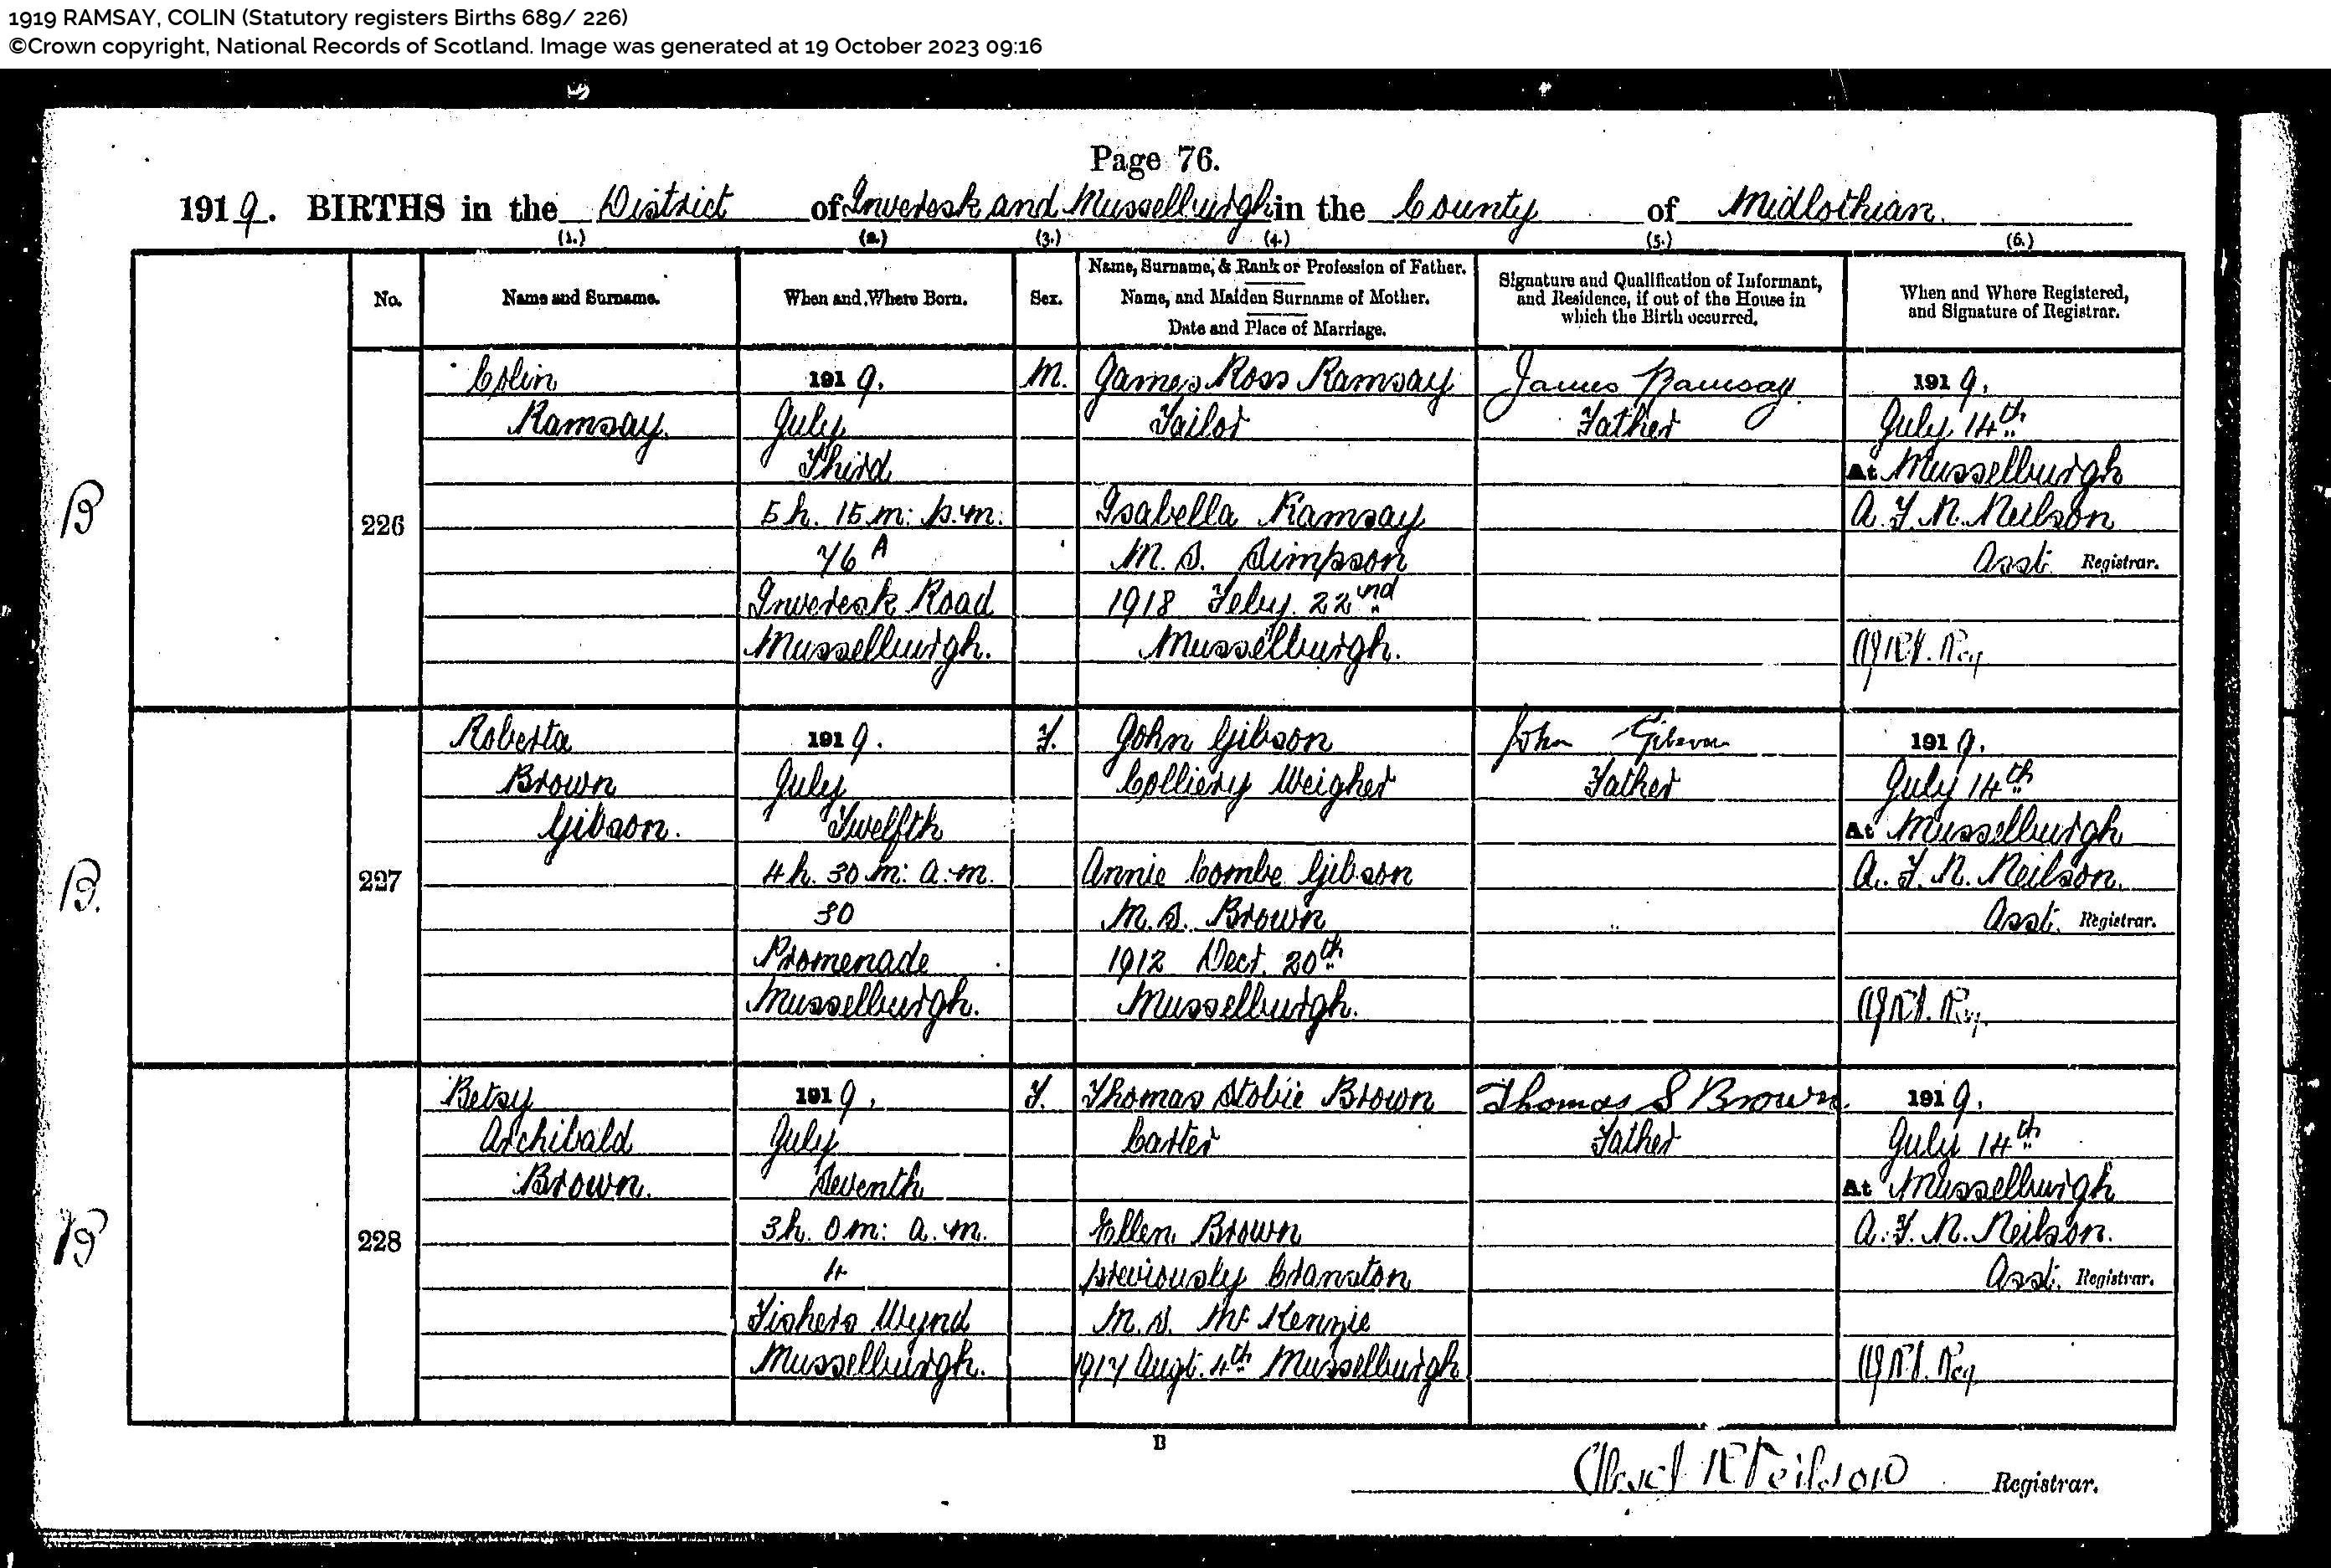 1919 RAMSAY, COLIN (Statutory registers Births 689/ 226)
©Crown copyright, National Records of Scotland. Image was generated at 19 October 2023 09:16
Page 76.
1919. BIRTHS in the District of Inveresk and Musselburgh in the County of Midlothian.
(1.) (2.) (3.) (4.) (5.) (6.)
No.
Name and Surname.
When and Where Born.
Sex.
Name, Surname, & Rank or Profession of Father.
Name, and Maiden Surname of Mother.
Date and Place of Marriage.
Signature and Qualification of Informant,
and Residence, if out of the House in
which the Birth occurred.
When and Where Registered,
and Signature of Registrar.
B
226
Colin
Ramsay.
1919.
July
Third
5 h. 15 m: p.m.
76 A
Inveresk Road
Musselburgh.
M.
James Ross Ramsay
Tailor
Isabella Ramsay
M.S. Simpson
1918 Feby. 22nd
Musselburgh.
James Ramsay
Father
1919.
July 14th
At Musselburgh
A. F. N. Neilson
Asst. Registrar.
Reg
B.
227
Roberta
Brown
Gibson.
1919.
July
Twelfth
4 h. 30 m: a.m.
30
Promenade
Musselburgh.
F.
John Gibson
Colliery Weigher
Annie Combe Gibson
M.S. Brown
1912 Decr. 20th
Musselburgh.
John Gibson
Father
1919.
July 14th
At Musselburgh
A. F. N. Neilson.
Asst. Registrar.
Reg.
B
228
Betsy
Archibald
Brown.
1919.
July
Seventh
3 h. 0 m: a.m.
4
Fishers Wynd
Musselburgh.
F.
Thomas Stobie Brown
Carter
Ellen Brown
previously Cranston
M.S. McKenzie
1917 Augt. 4th Musselburgh
Thomas S Brown.
Father
1919.
July 14th
At Musselburgh
A. F. N. Neilson.
Asst. Registrar.
Reg
B
Neilson Registrar.